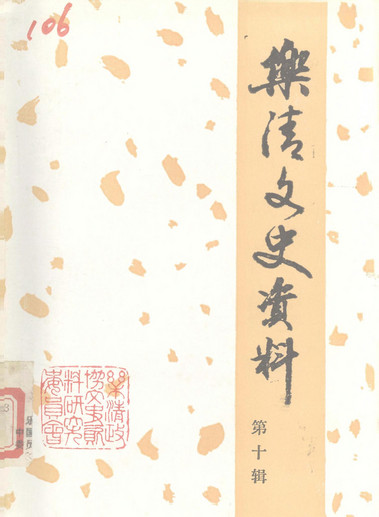 106
樂清文史资料
第十辑
樂清政
协文史资
料研究
委員會